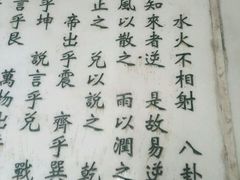 水火不相射 八卦
知來者逆 是故易逆
風以散之 雨以潤之
止之 兌以說之 乾
帝出乎震 齊乎巽
乎坤 說言乎兌 戰
言乎艮 萬物出